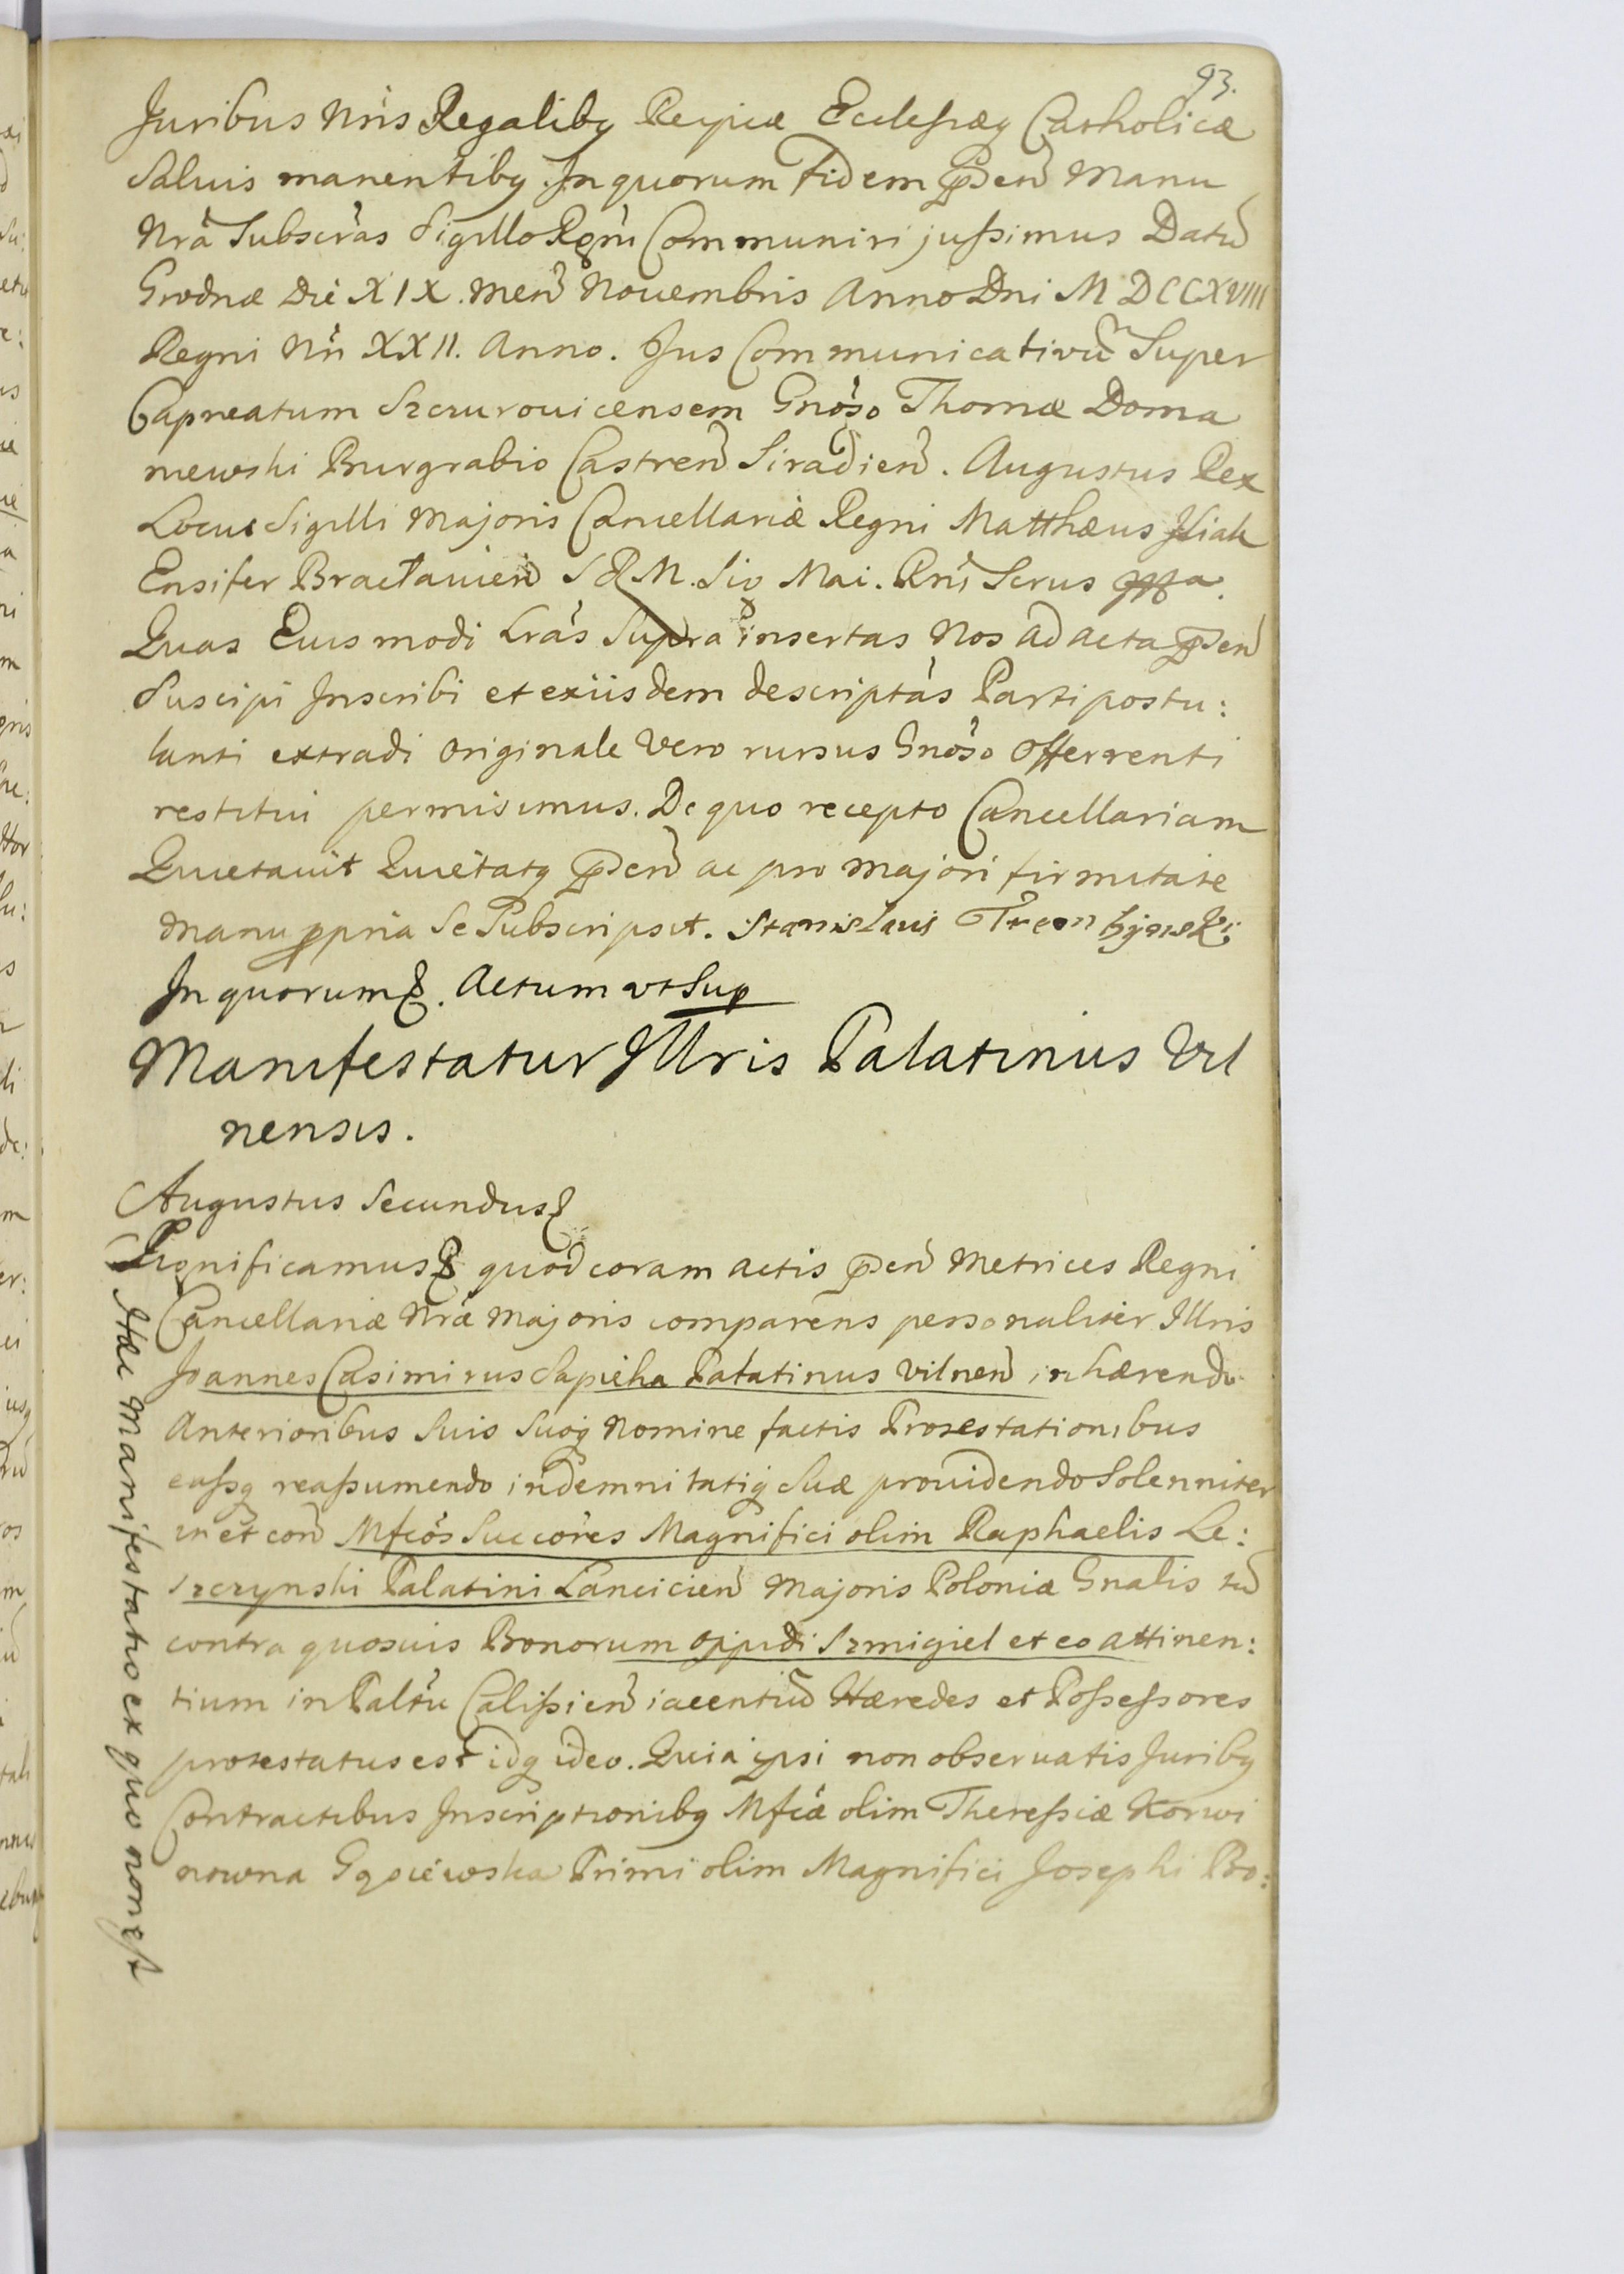 93.
Juribus Nr̃is Regalibq Reipcæ Ecclesiæq Catholicæ
Saluis manentibq. In quorum Fidem p̃sen̄ Manu
Nr̃a Subscr̃as Sigillo Regni Communiri jussimus Datū
Grodnæ Die XIX. Men̄ Nouembris Anno Dni MDCCXVIII
Regni Nr̃i XXII. Anno. Jus Communicativū Super
Capneatum Szczurouicensem Gnoso Thomæ Doma
niewski Burgrabio Castren̄ Siradien̄. Augustus Rex
Locus Sigilli Majoris Cancellariæ Regni Matthæus
Ensifer Braclauien̄ S R M. Sig Mai. Rni Scrus
Quas Eiusmodi Lr̃as Supra insertas Nos ad acta p̃sen̄
Suscipi Inscribi et ex iisdem descriptas Parti postu:
lanti extradi Originale Vero rursus Gnoso Offerrenti
restitui permisimus. De quo recepto Cancellariam
Quietauit Quietatq p̃sen̄ ac pro majori firmitate
manu ppria Se Subscripsit. Stanislaus
In quorum &. Actum ut Sup
Manifestatur Illris Palatinus Vil
nensis.
Augustus Secundus &
Significamus & quod coram actis p̃sen̄ Metrices Regni
Cancellariæ Nr̃æ Majoris comparens personaliter Illris
Joannes Casimirus Sapieha Palatinus Vilnen̄ inhærendo
Anterioribus Suis Suoq Nomine factis Protestationibus
eassq reassumendo indemnitatiq Suæ prouidendo Solenniter
in et con̄ Mfcos Succores Magnifici olim Raphaelis Le:
szczynski Palatini Lancicien̄ Majoris Poloniæ Gnalis tū
contra quosuis Bonorum Oppidi Szmigiel et eo attinen:
tium in Paltu Calissien̄ iacentiū Hæredes et Possessores
protestatus est idq ideo. Quia ipsi non obseruatis Juribq
Contractibus Inscriptionibq Mfcæ olim Theressiæ Korwi
nowna Gąsiewska Primi olim Magnifici Josephi Bo:
Hæc Manifestatio ex quo non est